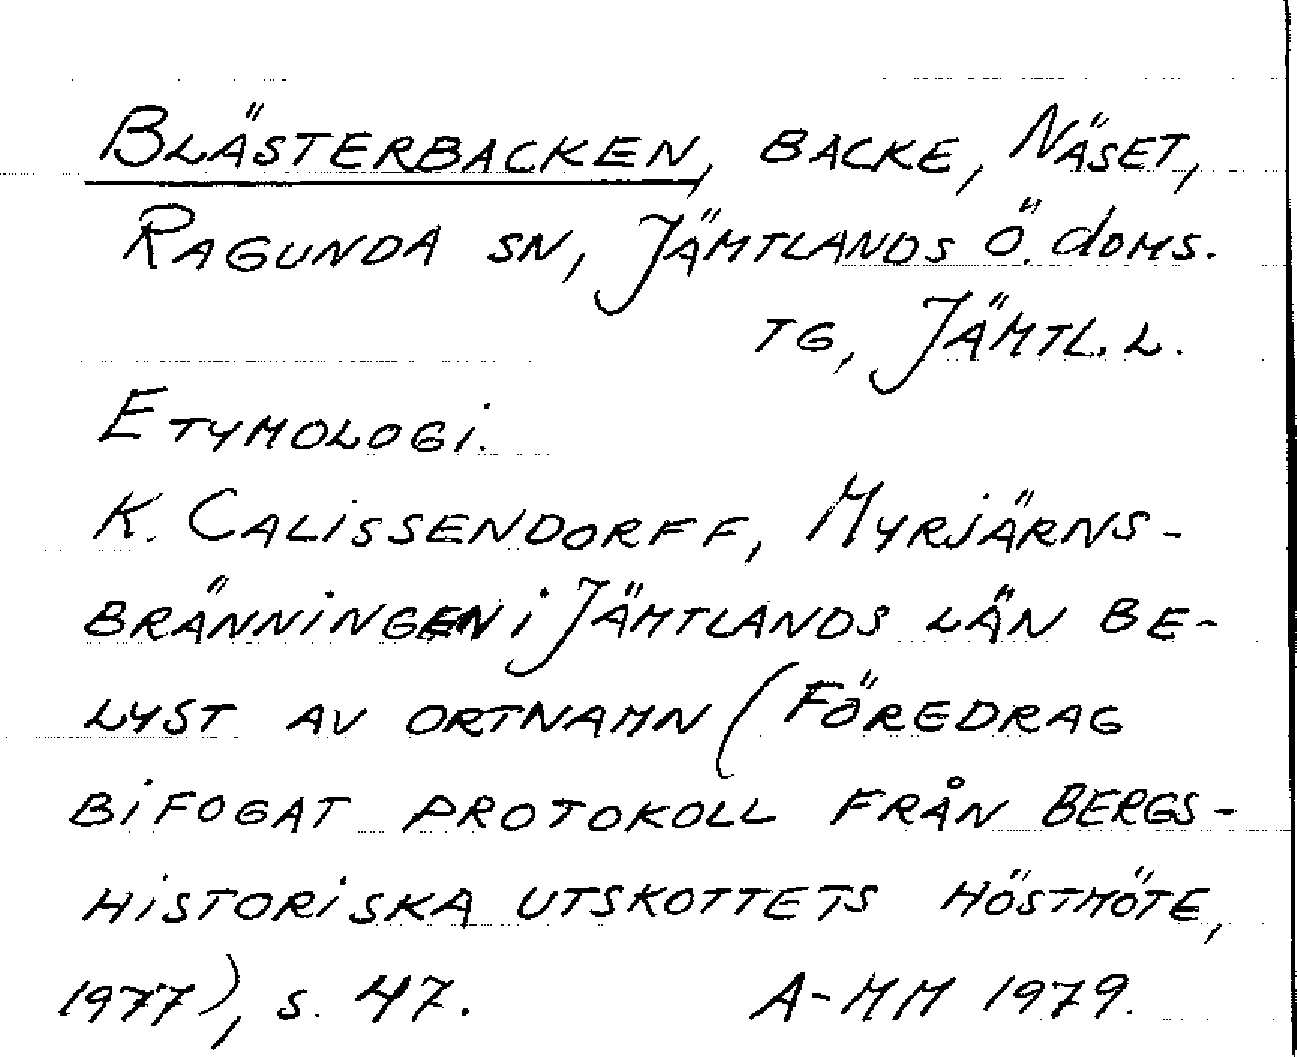 BLÄSTERBACKEN, BACKE, NÄSET,
RAGUNDA SN, JÄMTLANDS Ö. doms.
TG, JÄMTL. L.
ETYMOLOGi.
K. CALiSSENDORFF, MYRJÄRNS-
BRÄNNiNGEN i JÄMTLANDS LÄN BE-
LYST AV ORTNAMN (FÖREDRAG
BiFOGAT PROTOKOLL FRÅN BERGS-
HiSTORiSKA UTSKOTTETS HÖSTMÖTE,
1977), s. 47. A-MM 1979.